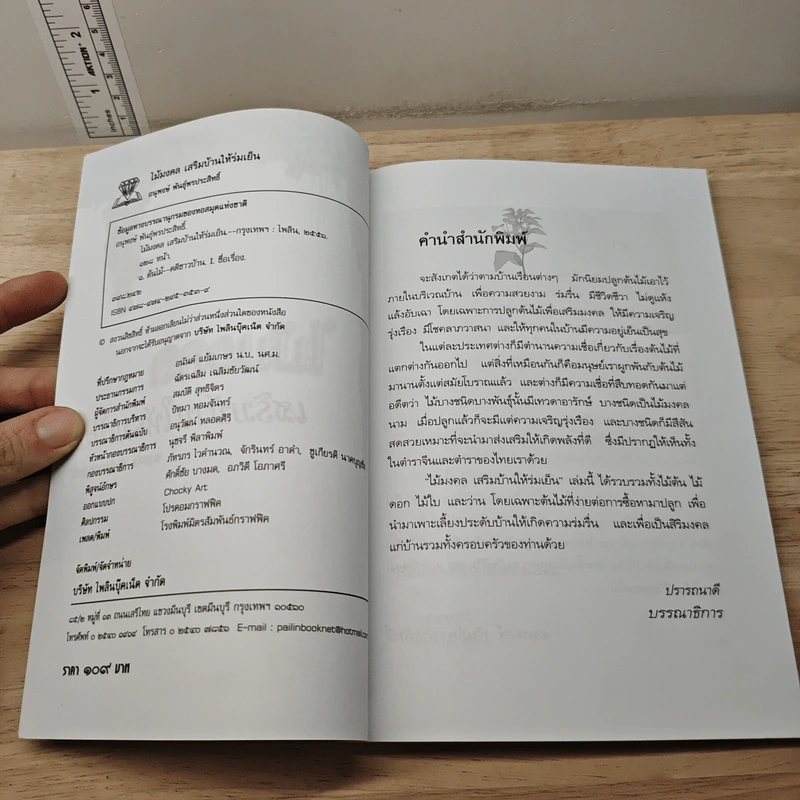 inches 1 AKTION. 2
ไม้มงคล เสริมบ้านให้ร่มเย็น
อนุพงษ์ พันธุ์พรประสิทธิ์
ข้อมูลทางบรรณานุกรมของหอสมุดแห่งชาติ
อนุพงษ์ พันธุ์พรประสิทธิ์.
ไม้มงคล เสริมบ้านให้ร่มเย็น.--กรุงเทพฯ : ไพลิน, ๒๕๕๑.
๑๒๘ หน้า.
๑. ต้นไม้--คติชาวบ้าน. I. ชื่อเรื่อง.
๓๙๘.๒๔๒
ISBN ๙๗๘-๙๗๔-๒๘๕-๓๕๓-๙
© สงวนลิขสิทธิ์ ห้ามลอกเลียนไม่ว่าส่วนหนึ่งส่วนใดของหนังสือ
นอกจากจะได้รับอนุญาตจาก บริษัท ไพลินบุ๊คเน็ต จำกัด
ที่ปรึกษากฎหมาย อนันต์ แย้มเกษร น.บ., นศ.ม.
ประธานกรรมการ ฉัตรเฉลิม เฉลิมชัยวัฒน์
ผู้จัดการสำนักพิมพ์ สมบัติ สุทธิจิตร
บรรณาธิการบริหาร ปัทมา ทอมจันทร์
บรรณาธิการต้นฉบับ อนุวัฒน์ หลอดศิริ
หัวหน้ากองบรรณาธิการ นุชจรี พิลาพิมพ์
กองบรรณาธิการ ภัทภร ไวคำนวณ, จักรินทร์ อาดำ, ชูเกียรติ นาคบุญชัย
พิสูจน์อักษร ศักดิ์ชัย บางมด, อภวิดี โอภาศรี
ออกแบบปก Chocky Art
ศิลปกรรม โปรคอมกราฟฟิค
เพลต/พิมพ์ โรงพิมพ์มิตรสัมพันธ์กราฟฟิค
จัดพิมพ์/จัดจำหน่าย
บริษัท ไพลินบุ๊คเน็ต จำกัด
๘๕/๒ หมู่ที่ ๑๓ ถนนเสรีไทย แขวงมีนบุรี เขตมีนบุรี กรุงเทพฯ ๑๐๕๑๐
โทรศัพท์ ๐ ๒๕๔๐ ๑๙๑๙ โทรสาร ๐ ๒๕๔๐ ๗๘๕๖ E-mail : pailinbooknet@hotmail.com
ราคา ๑๐๙ บาท
คำนำสำนักพิมพ์
จะสังเกตได้ว่าตามบ้านเรือนต่างๆ มักนิยมปลูกต้นไม้เอาไว้
ภายในบริเวณบ้าน เพื่อความสวยงาม ร่มรื่น มีชีวิตชีวา ไม่ดูแห้ง
แล้งอับเฉา โดยเฉพาะการปลูกต้นไม้เพื่อเสริมมงคล ให้มีความเจริญ
รุ่งเรือง มีโชคลาภวาสนา และให้ทุกคนในบ้านมีความอยู่เย็นเป็นสุข
ในแต่ละประเทศต่างก็มีตำนานความเชื่อเกี่ยวกับเรื่องต้นไม้ที่
แตกต่างกันออกไป แต่สิ่งที่เหมือนกันก็คือมนุษย์เราผูกพันกับต้นไม้
มานานตั้งแต่สมัยโบราณแล้ว และต่างก็มีความเชื่อที่สืบทอดกันมาแต่
อดีตว่า ไม้บางชนิดบางพันธุ์นั้นมีเทวดาอารักษ์ บางชนิดเป็นไม้มงคล
นาม เมื่อปลูกแล้วก็จะมีแต่ความเจริญรุ่งเรือง และบางชนิดก็มีสีสัน
สดสวยเหมาะที่จะนำมาส่งเสริมให้เกิดพลังที่ดี ซึ่งมีปรากฏให้เห็นทั้ง
ในตำราจีนและตำราของไทยเราด้วย
“ไม้มงคล เสริมบ้านให้ร่มเย็น” เล่มนี้ ได้รวบรวมทั้งไม้ต้น ไม้
ดอก ไม้ใบ และว่าน โดยเฉพาะต้นไม้ที่ง่ายต่อการซื้อหามาปลูก เพื่อ
นำมาเพาะเลี้ยงประดับบ้านให้เกิดความร่มรื่น และเพื่อเป็นสิริมงคล
แก่บ้านรวมทั้งครอบครัวของท่านด้วย
ปรารถนาดี
บรรณาธิการ